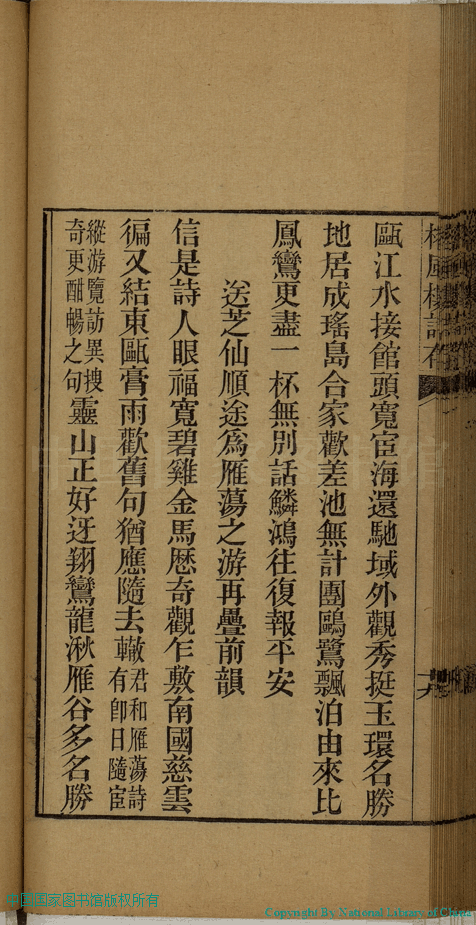 風樓詩存
甌江水接館頭寬宦海還馳域外觀秀挺玉環名勝
地居成瑤島合家歡差池無計團鷗鷺飄泊由來比
鳳鸞更盡一杯無別話鱗鴻往復報平安
送芝仙順途爲雁蕩之游再疊前韻
信是詩人眼福寬碧雞金馬歷奇觀乍敷南國慈雲
徧又結東甌膏雨歡舊句猶應隨去轍
君和雁蕩詩
有卽日隨宦
縱游覽訪異搜
奇更酣暢之句
靈山正好迓翔鸞龍湫雁谷多名勝
中国国家图书馆版权所有
Copyright By National Library of China